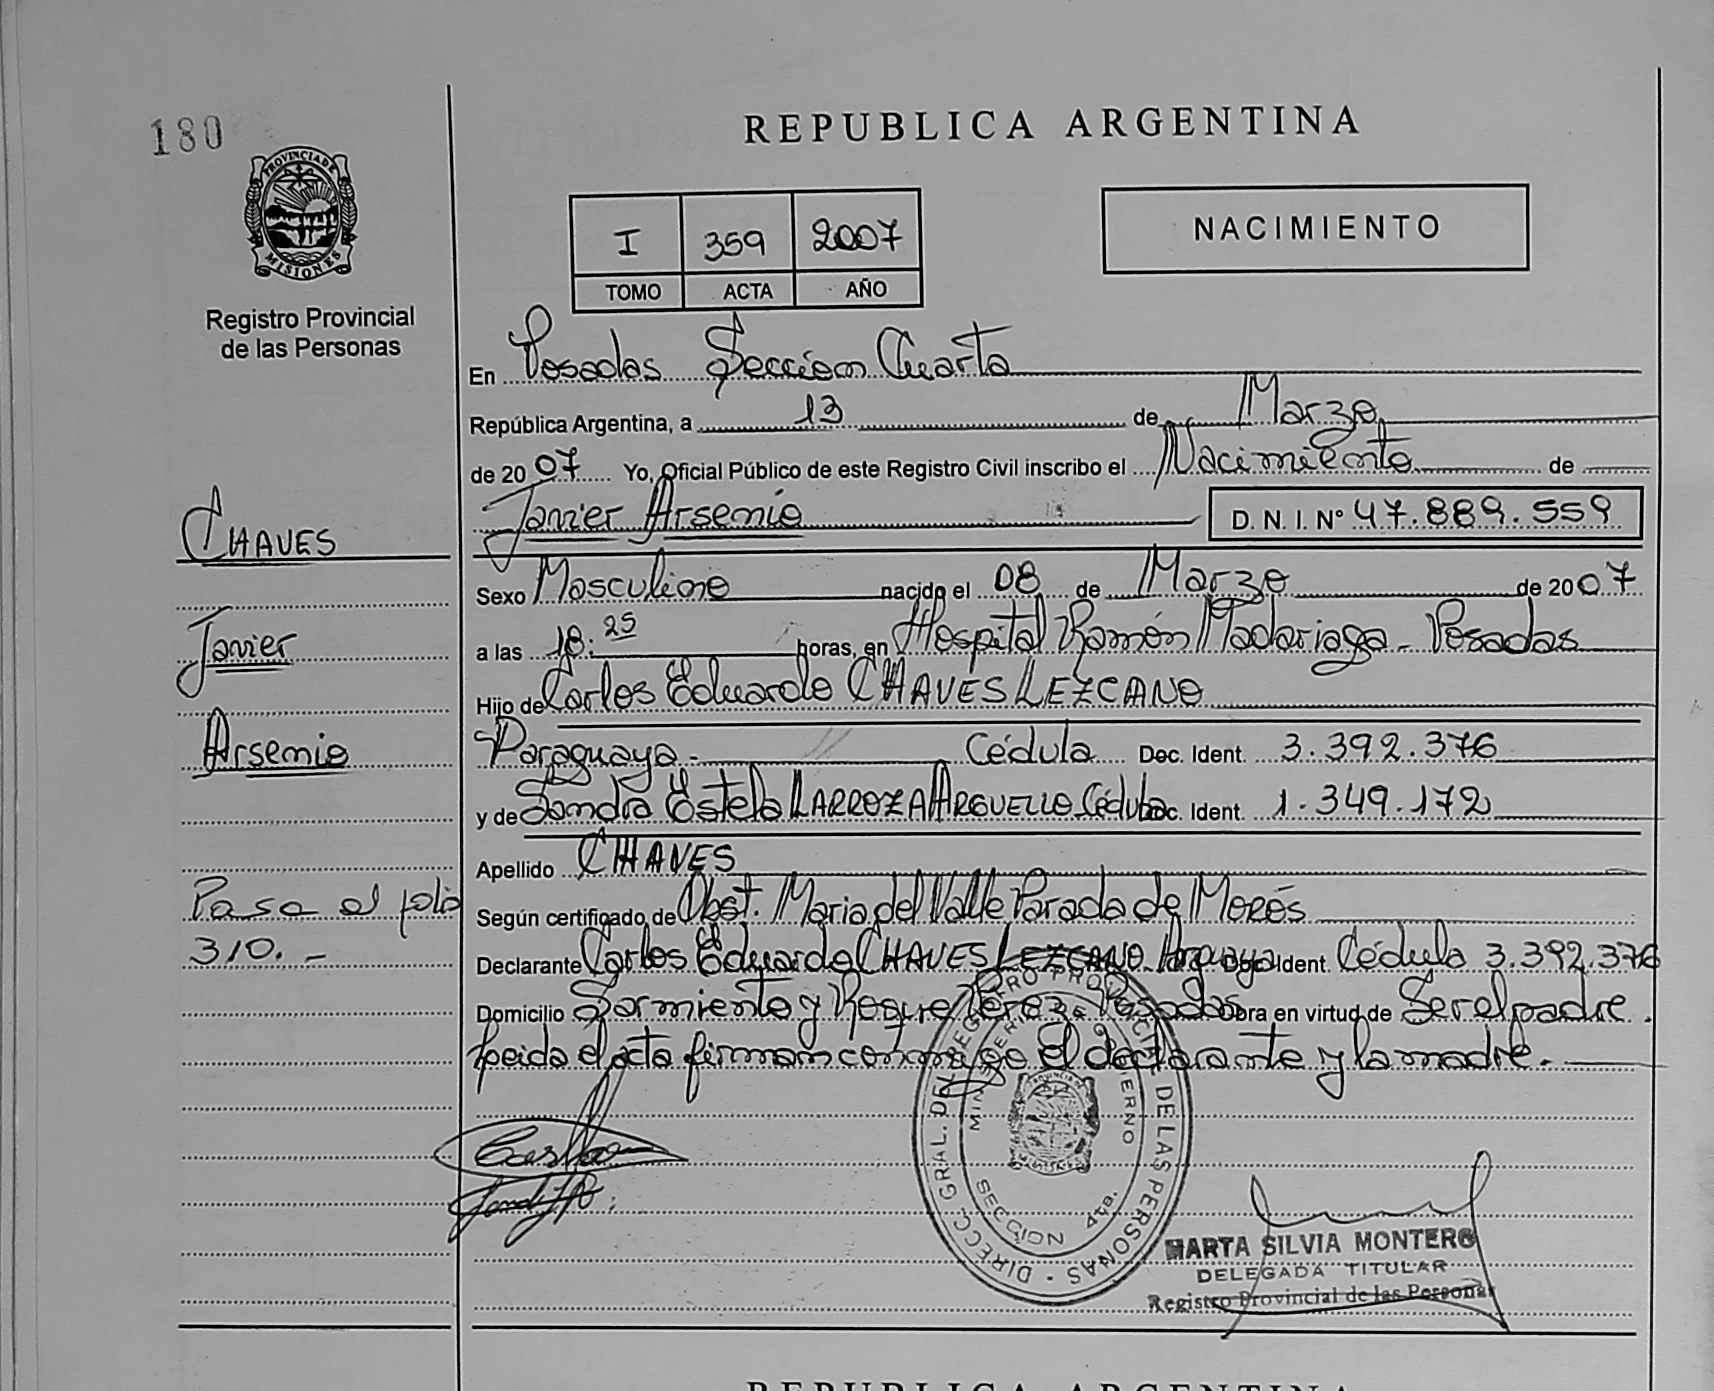 180
REPUBLICA ARGENTINA
PROVINCIA DE
MISIONES
Registro Provincial
de las Personas
I 359 2007
TOMO ACTA AÑO
NACIMIENTO
En Posadas Sección Cuarta
República Argentina, a 13 de Marzo
de 2007 Yo, Oficial Público de este Registro Civil inscribo el Nacimiento de
Javier Arsenio D. N. I. Nº 47.889.559
CHAVES
Javier
Arsenio
Sexo Masculino nacido el 08 de Marzo de 2007
a las 18:25 horas, en Hospital Ramón Madariaga - Posadas
Hijo de Carlos Eduardo CHAVES LEZCANO
Paraguaya - Cédula Doc. Ident. 3.392.376
y de Sandra Estela LARROZA ARGUELLO Cédula Doc. Ident. 1.349.172
Apellido CHAVES
Según certificado de Obst. Maria del Valle Parada de Morés
Pasa al folio
310. -
Declarante Carlos Eduardo CHAVES LEZCANO Doc. Ident. Cédula 3.392.376
Domicilio Sarmiento y Roque Perez - Posadas Obra en virtud de Ser el padre.
Leida el acta firman conmigo el declarante y la madre. -
DIRECC. GRAL. DEL REGISTRO PROVINCIAL DE LAS PERSONAS
MINISTERIO DE GOBIERNO
SECCION 4ta.
MARTA SILVIA MONTERO
DELEGADA TITULAR
Registro Provincial de las Personas
REPUBLICA ARGENTINA